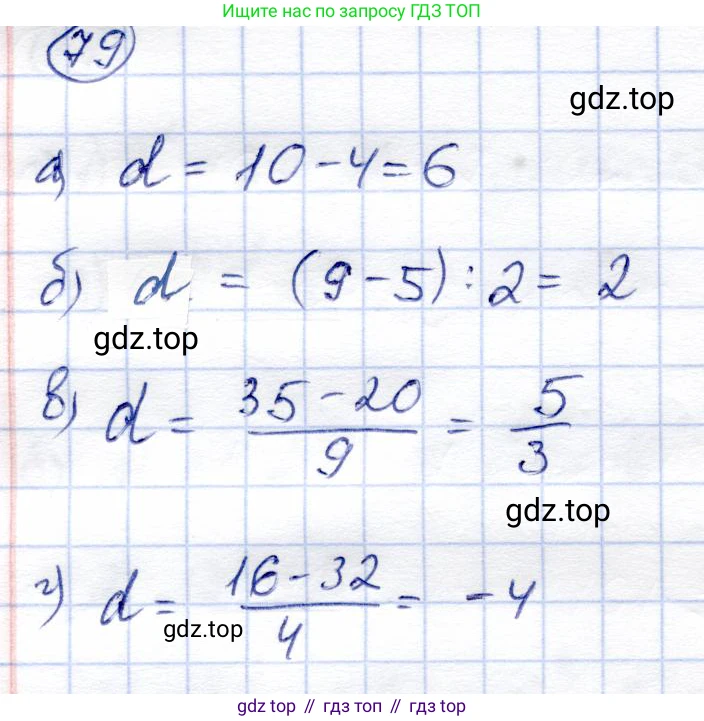 Ищите нас по запросу ГДЗ ТОП
79
gdz.top
а) d = 10 - 4 = 6
б) d = (9 - 5) : 2 = 2
gdz.top
в) d = \frac{35 - 20}{9} = \frac{5}{3}
gdz.top
г) d = \frac{16 - 32}{4} = -4
gdz.top
gdz top // гдз топ // gdz.top